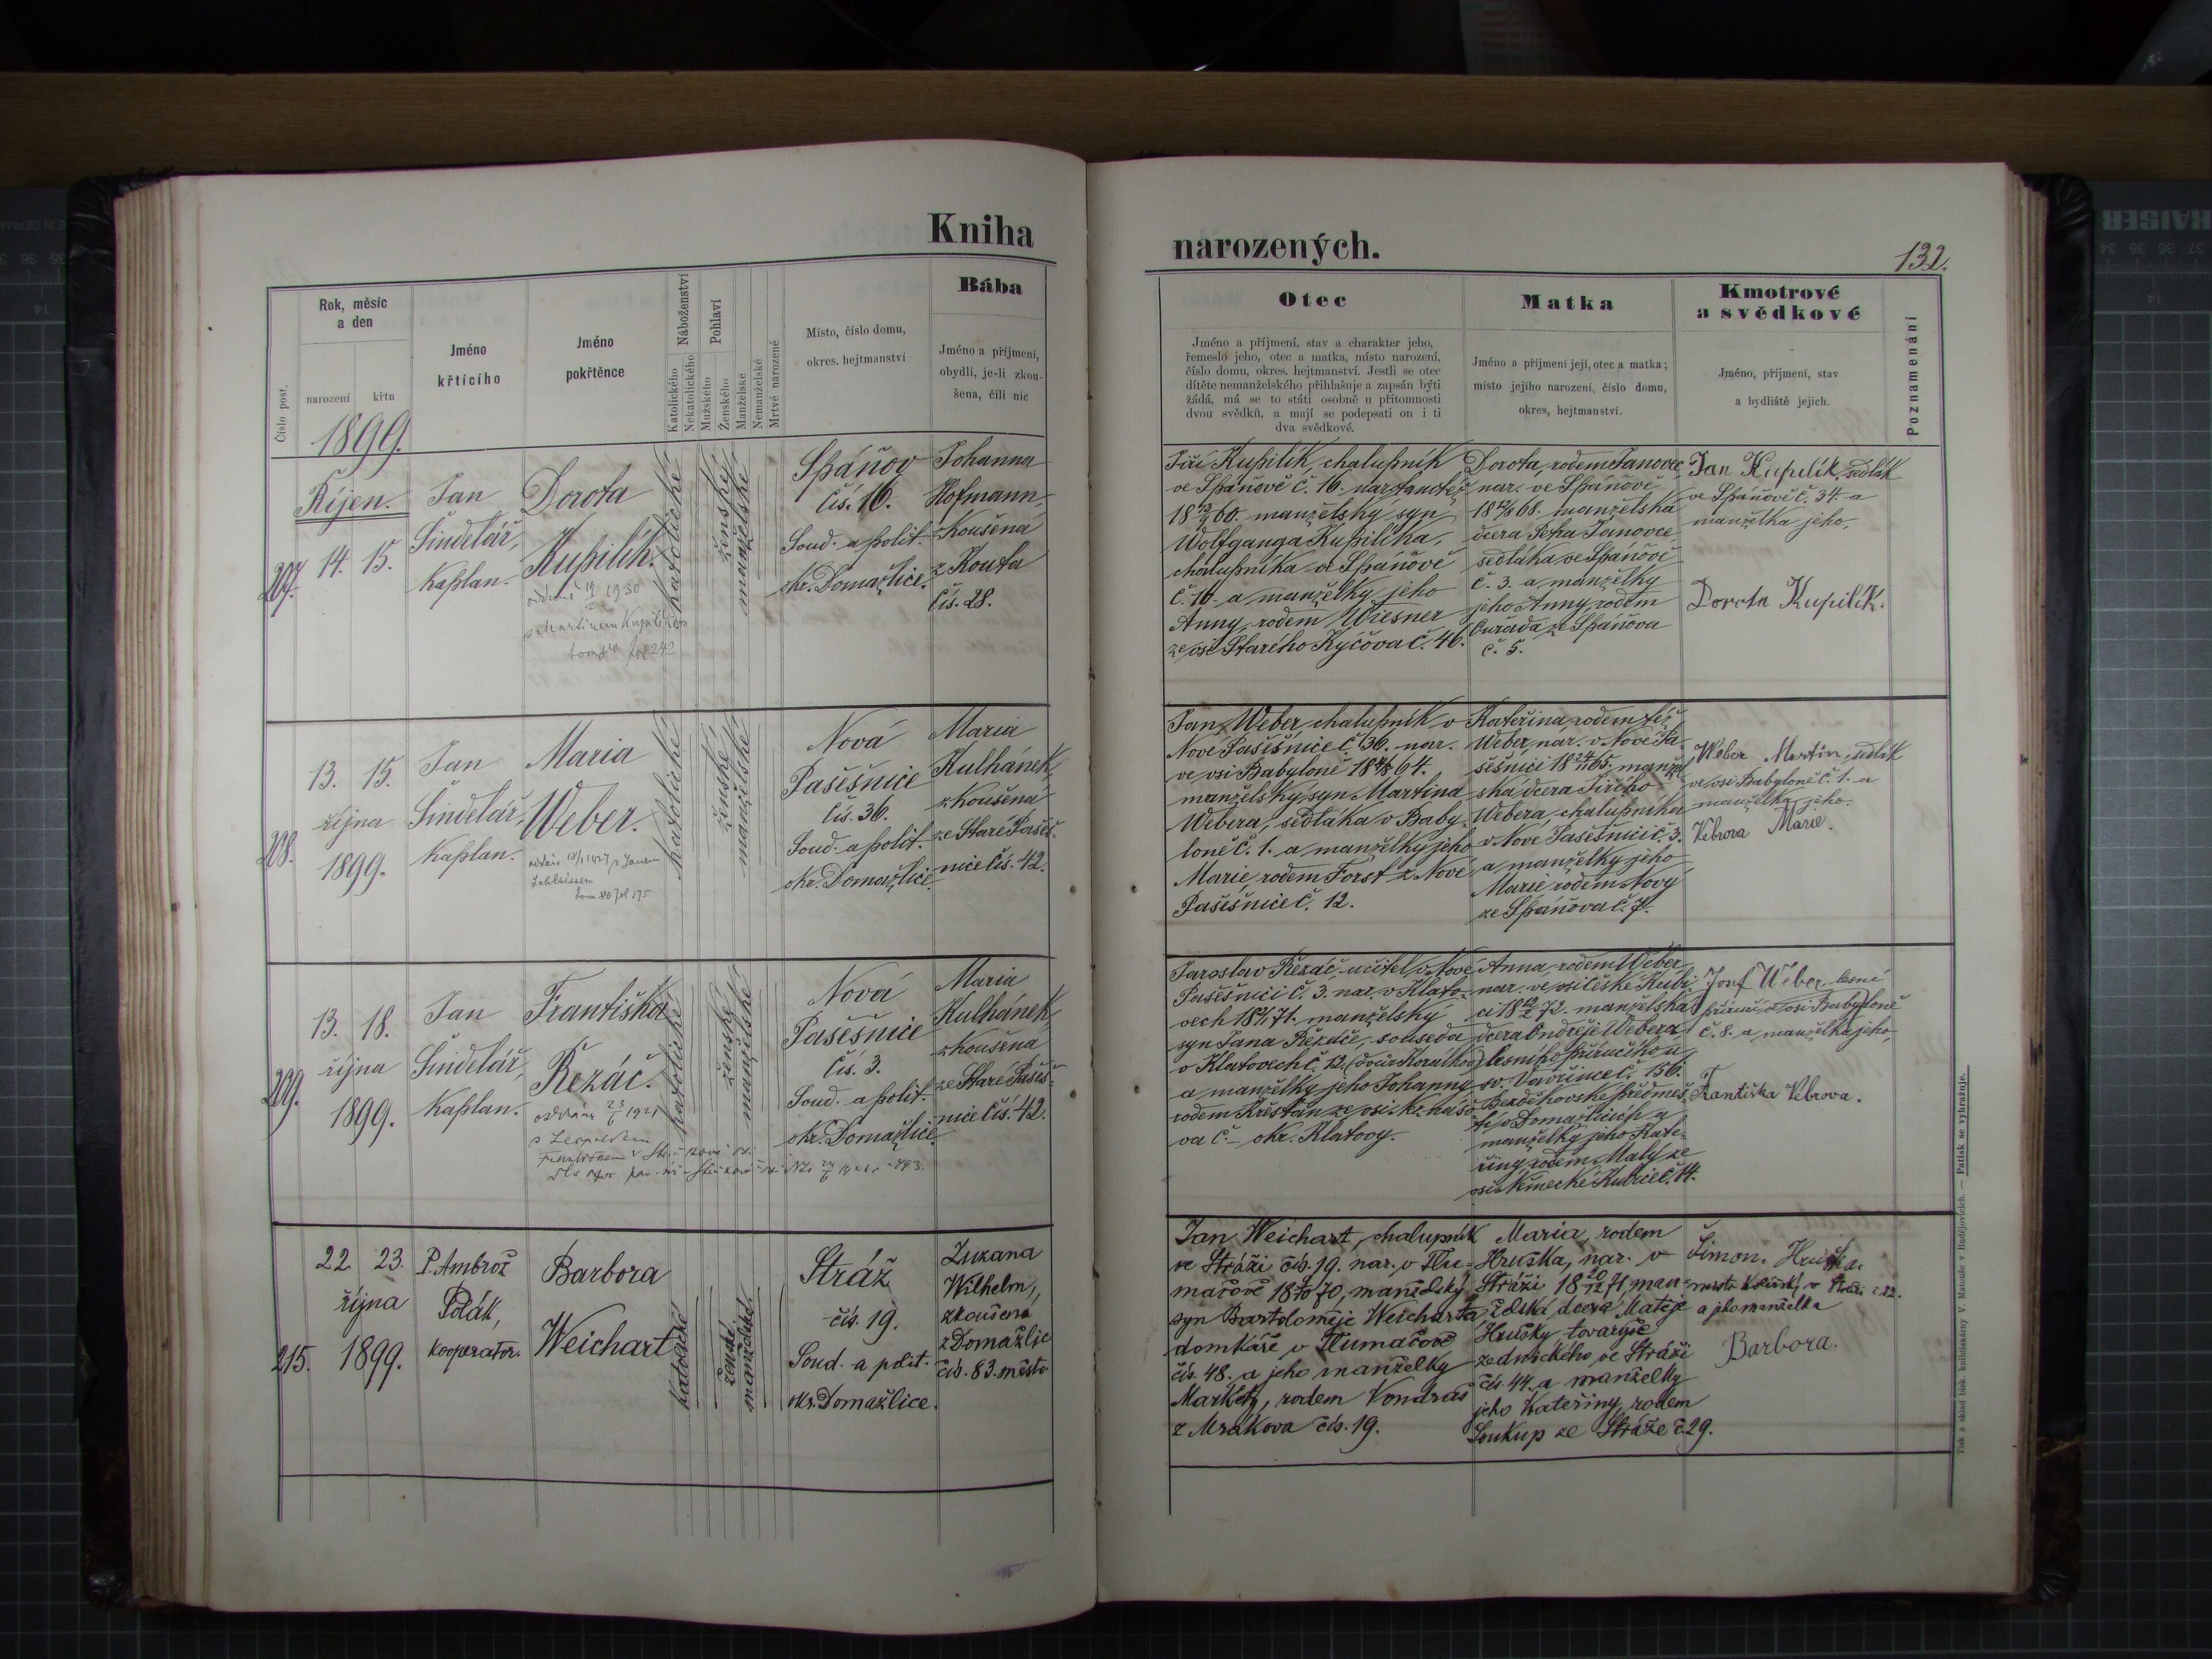 Kniha
narozených.
132.
Číslo post.
Rok, měsíc
a den
narození
křtu
1899.
Jméno
křtícího
Jméno
pokřtěnce
Náboženství
Katolického
Nekatolického
Pohlaví
Mužského
Ženského
Manželské
Nemanželské
Mrtvé narozené
Místo, číslo domu,
okres. hejtmanství
Bába
Jméno a příjmení,
obydlí, je-li zkou-
šena, čili nic
Otec
Jméno a příjmení, stav a charakter jeho,
řemeslo jeho, otec a matka, místo narození,
číslo domu, okres. hejtmanství. Jestli se otec
dítěte nemanželského přihlašuje a zapsán býti
žádá, má se to státi osobně u přítomnosti
dvou svědků, a mají se podepsati on i ti
dva svědkové.
Matka
Jméno a příjmení její, otec a matka;
místo jejího narození, číslo domu,
okres, hejtmanství.
Kmotrové
a svědkové
Jméno, příjmení, stav
a bydliště jejich.
Poznamenání
Říjen.
207.
14. 15.
Jan
Šindelář,
kaplan.
Dorota
Kupilík.
1930
s Martinem Kupilíkem
fol 242
katolické
ženské
manželské
Spáňov
čís. 16.
Soud. a polit.
okr. Domažlice.
Johanna
Hofmann,
zkoušená
z Kouta
čís. 28.
Jiří Kupilík, chalupník
ve Spáňově č. 16. nar. tamtéž
18 60. manželský syn
Wolfganga Kupilíka,
chalupníka ve Spáňově
č. 10. a manželky jeho
Anny, rodem Wiesner
ze vsi Starého Kýčova č. 46.
Dorota, rodem Janovec
nar. ve Spáňově
18 68. manželská
dcera Petra Janovce
sedláka ve Spáňově
č. 3. a manželky
jeho Anny, rodem
ze Spáňova
č. 5.
Jan Kupilík, sedlák
ve Spáňově č. 34. a
manželka jeho,
Dorota Kupilík.
208.
13. 15.
října
1899.
Jan
Šindelář,
kaplan.
Maria
Weber.
s Janem
fol 175
katolické
ženské
manželské
Nová
Pasěšnice
čís. 36.
Soud. a polit.
okr. Domažlice.
Maria
Kulhánek,
zkoušená
ze Staré Paseš-
nice čís. 42.
Jan Weber, chalupník v
Nové Pasěšnice č. 36. nar.
ve vsi Babyloně 18 64.
manželský syn Martina
Webera, sedláka v Baby-
loně č. 1. a manželky jeho
Marie, rodem Forst z Nové
Pasěšnice č. 12.
Kateřina, rodem též
Weber, nár. v Nové Pa-
sěšnici 18 65. manžel-
ská dcera Jiřího
Webera, chalupníka
v Nové Pasěšnici č. 3.
a manželky jeho
Marie, rodem Nový
ze Spáňova č. 7.
Weber Martin, sedlák
ve vsi Babyloně č. 1. a
manželka jeho.
Vebrova Marie.
209.
13. 18.
října
1899.
Jan
Šindelář,
kaplan.
Františka
Řezáč.
1921
s Leopoldem
katolické
ženské
manželské
Nová
Pasěšnice
čís. 3.
Soud. a polit.
okr. Domažlice.
Maria
Kulhánek,
zkoušená
ze Staré Paseš-
nice čís. 42.
Jaroslav Řezáč, učitel v Nové
Pasěšnici č. 3. nar. v Klato-
vech 18 71. manželský
syn Jana Řezáče, souseda
v Klatovech č. 12.
a manželky jeho Johanny
rodem Křesťan ze vsi
va č. – okr. Klatovy.
Anna, rodem Weber,
nar. ve vsi České Kubi-
ci 18 72. manželská
dcera Ondřeje Webera,
lesního příručího u
sv. Vavřince č. 156.
Bezděkovské předměs-
tí v Domažlicích a
manželky jeho Kate-
řiny rodem Malý ze
vsi Kmecké Kubice č. 14.
Josef Weber, lesní
příručí ve vsi Babyloně
č. 8. a manželka jeho,
Františka Vebrova.
215.
22. 23.
října
1899.
P. Ambrož
Polák,
kooperator.
Barbora
Weichart
katolické
ženské
manželské
Stráž
čís. 19.
Soud. a polit.
okr. Domažlice.
Zuzana
Wilhelm,
zkoušená
z Domažlic
čís. 83. město
Jan Weichart, chalupník
ve Stráži čís. 19. nar. v Tlu-
mačově 18 70, manželský
syn Bartoloměje Weicharta
domkáře v Tlumačově
čís. 48. a jeho manželky
Markéty, rodem Vondraš
z Mrákova čís. 19.
Maria, rodem
Hruška, nar. v
Stráži 18 71, man-
želská dcera Matěje
Hrušky, tovaryše
zednického ve Stráži
čís. 44. a manželky
jeho Kateřiny, rodem
Soukup ze Stráže č. 29.
Šimon Hruška
a jeho manželka
Barbora.
Tisk a sklad knihtiskárny V. Macouše v Budějovicích. — Patisk se vyhražuje.
KAISER